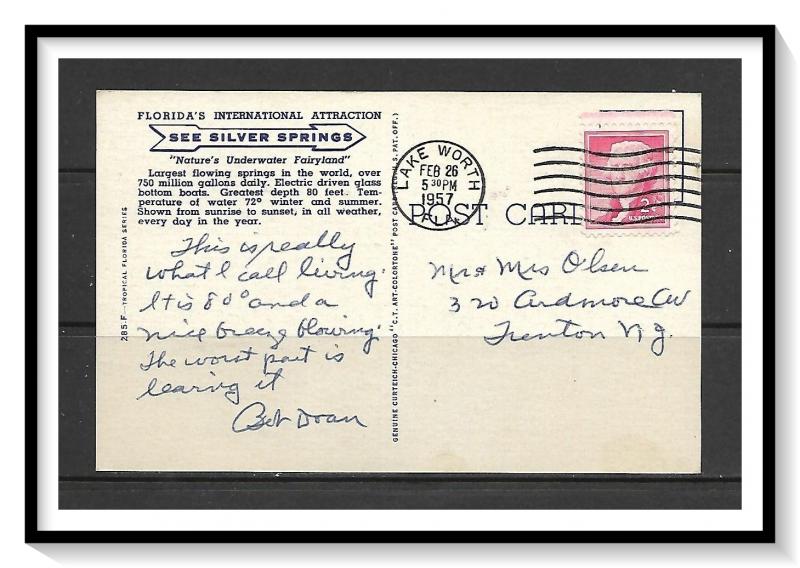 FLORIDA'S INTERNATIONAL ATTRACTION
SEE SILVER SPRINGS
"Nature's Underwater Fairyland"
Largest flowing springs in the world, over
750 million gallons daily. Electric driven glass
bottom boats. Greatest depth 80 feet. Tem-
perature of water 72° winter and summer.
Shown from sunrise to sunset, in all weather,
every day in the year.
This is really
what I call living.
It is 80° and a
nice breeze blowing.
The worst part is
leaving it
Bob Doan
285-F-TROPICAL FLORIDA SERIES
GENUINE CURTEICH-CHICAGO "C. T. ART-COLORTONE" POST CARD (REG. U.S. PAT. OFF.)
LAKE WORTH
FEB 26
5 30 PM
1957
FLA.
POST CARD
2¢
Mr & Mrs Olsen
320 Ardmore Av
Trenton N.J.